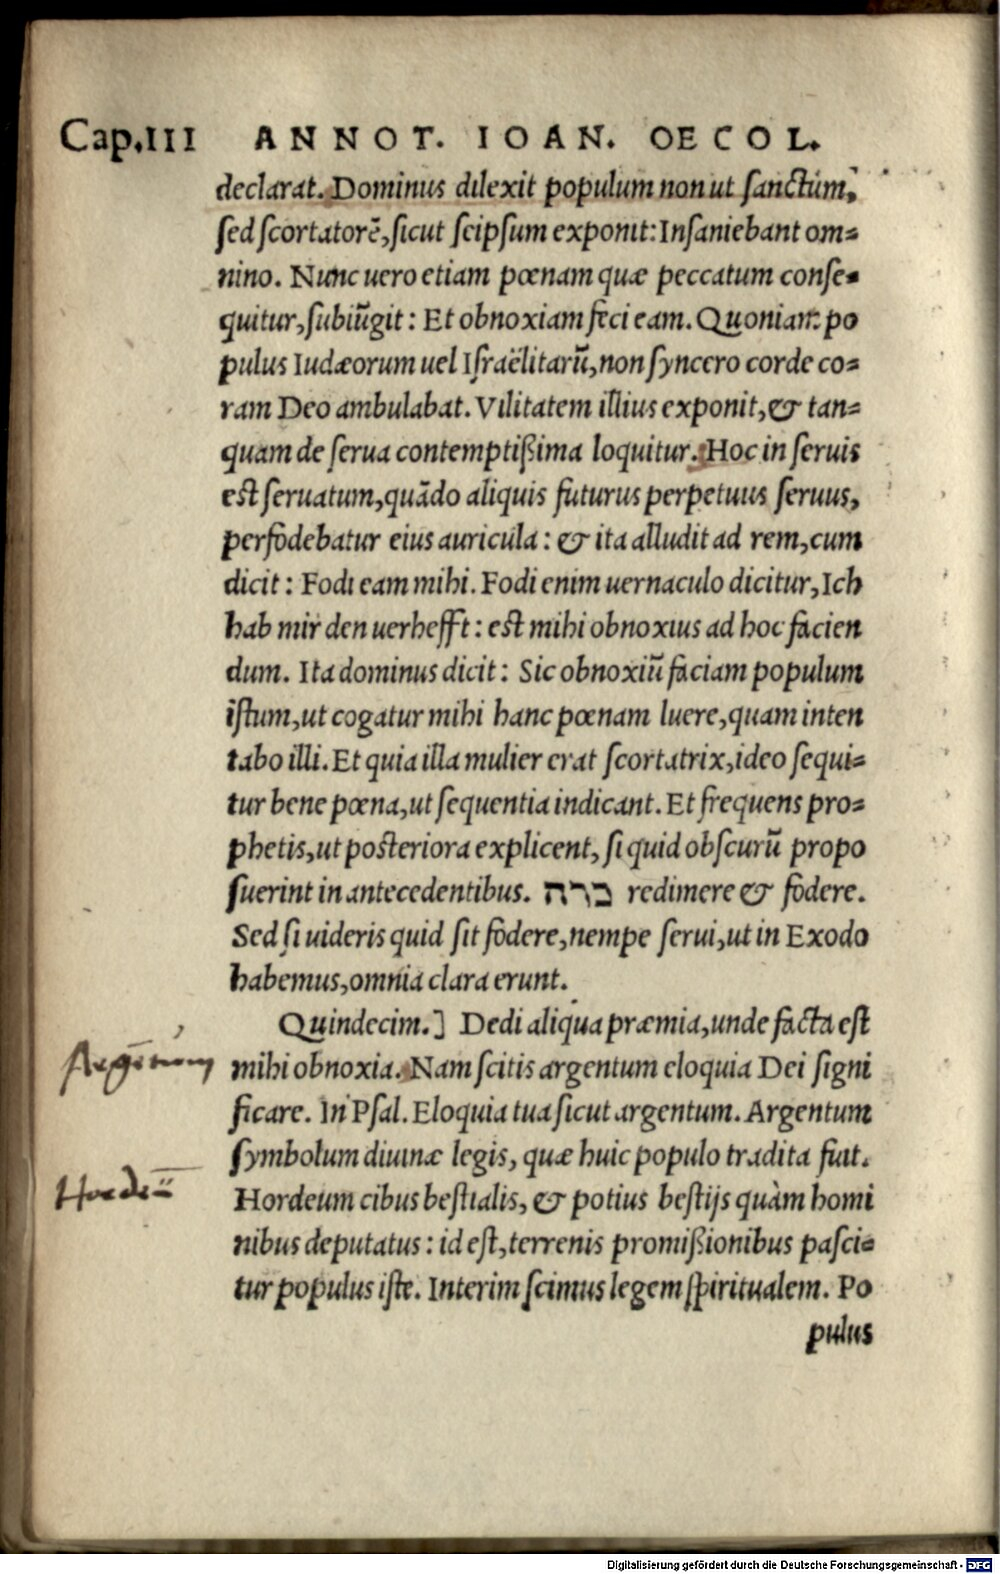 Cap.III ANNOT. IOAN. OECOL.
declarat. Dominus dilexit populum non ut sanctum,
sed scortatorē, sicut seipsum exponit: Insaniebant om=
nino. Nunc uero etiam pœnam quæ peccatum conse=
quitur, subiūgit: Et obnoxiam feci eam. Quoniam po
pulus Iudæorum uel Israëlitarū, non syncero corde co=
ram Deo ambulabat. Vilitatem illius exponit, & tan=
quam de serua contemptißima loquitur. Hoc in seruis
est seruatum, quādo aliquis futurus perpetuus seruus,
perfodebatur eius auricula: & ita alludit ad rem, cum
dicit: Fodi eam mihi. Fodi enim uernaculo dicitur, Ich
hab mir den uerhefft: est mihi obnoxius ad hoc facien
dum. Ita dominus dicit: Sic obnoxiū faciam populum
istum, ut cogatur mihi hanc pœnam luere, quam inten
tabo illi. Et quia illa mulier erat scortatrix, ideo sequi=
tur bene pœna, ut sequentia indicant. Et frequens pro=
phetis, ut posteriora explicent, si quid obscurū propo
suerint in antecedentibus. כרה redimere & fodere.
Sed si uideris quid sit fodere, nempe serui, ut in Exodo
habemus, omnia clara erunt.
Quindecim.] Dedi aliqua præmia, unde facta est
Argentum
mihi obnoxia. Nam scitis argentum eloquia Dei signi
ficare. In Psal. Eloquia tua sicut argentum. Argentum
symbolum diuinæ legis, quæ huic populo tradita fuit.
Hordeū
Hordeum cibus bestialis, & potius bestijs quàm homi
nibus deputatus: id est, terrenis promißionibus pasci=
tur populus iste. Interim scimus legem spiritualem. Po
pulus
Digitalisierung gefördert durch die Deutsche Forschungsgemeinschaft - DFG